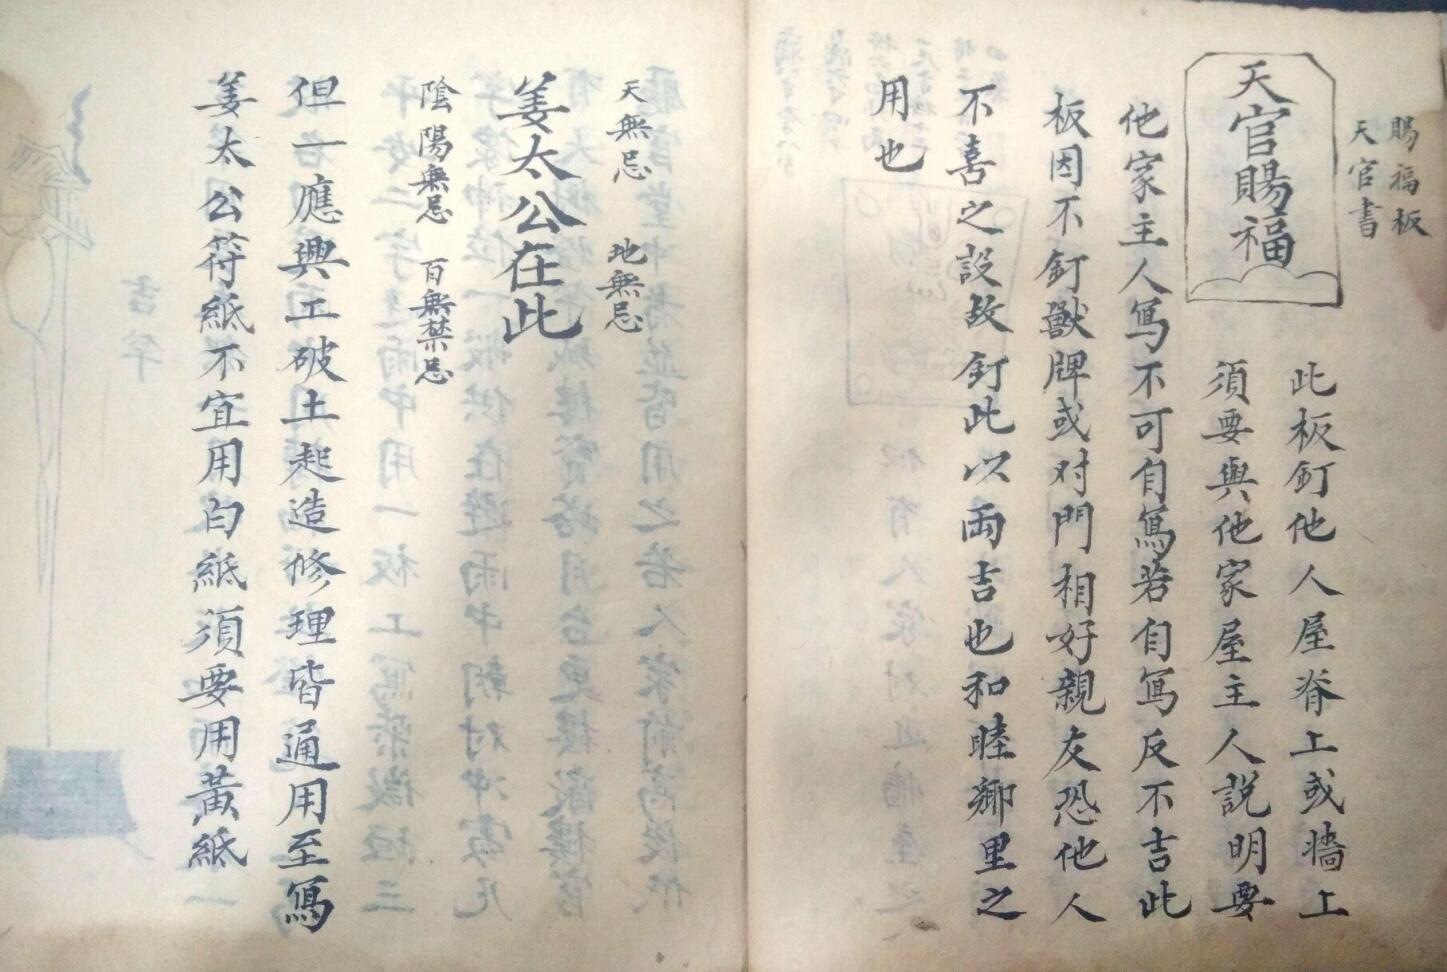 賜福板
天官書
天官賜福
此板釘他人屋脊上或牆上
須要與他家屋主人說明要
他家主人寫不可自寫若自寫反不吉此
板因不釘獸牌或对門相好親友恐他人
不喜之設故釘此以両吉也和睦鄉里之
用也
天無忌 地無忌
姜太公在此
陰陽無忌 百無禁忌
但一應興工破土起造修理皆通用至寫
姜太公符紙不宜用白紙須要用黃紙